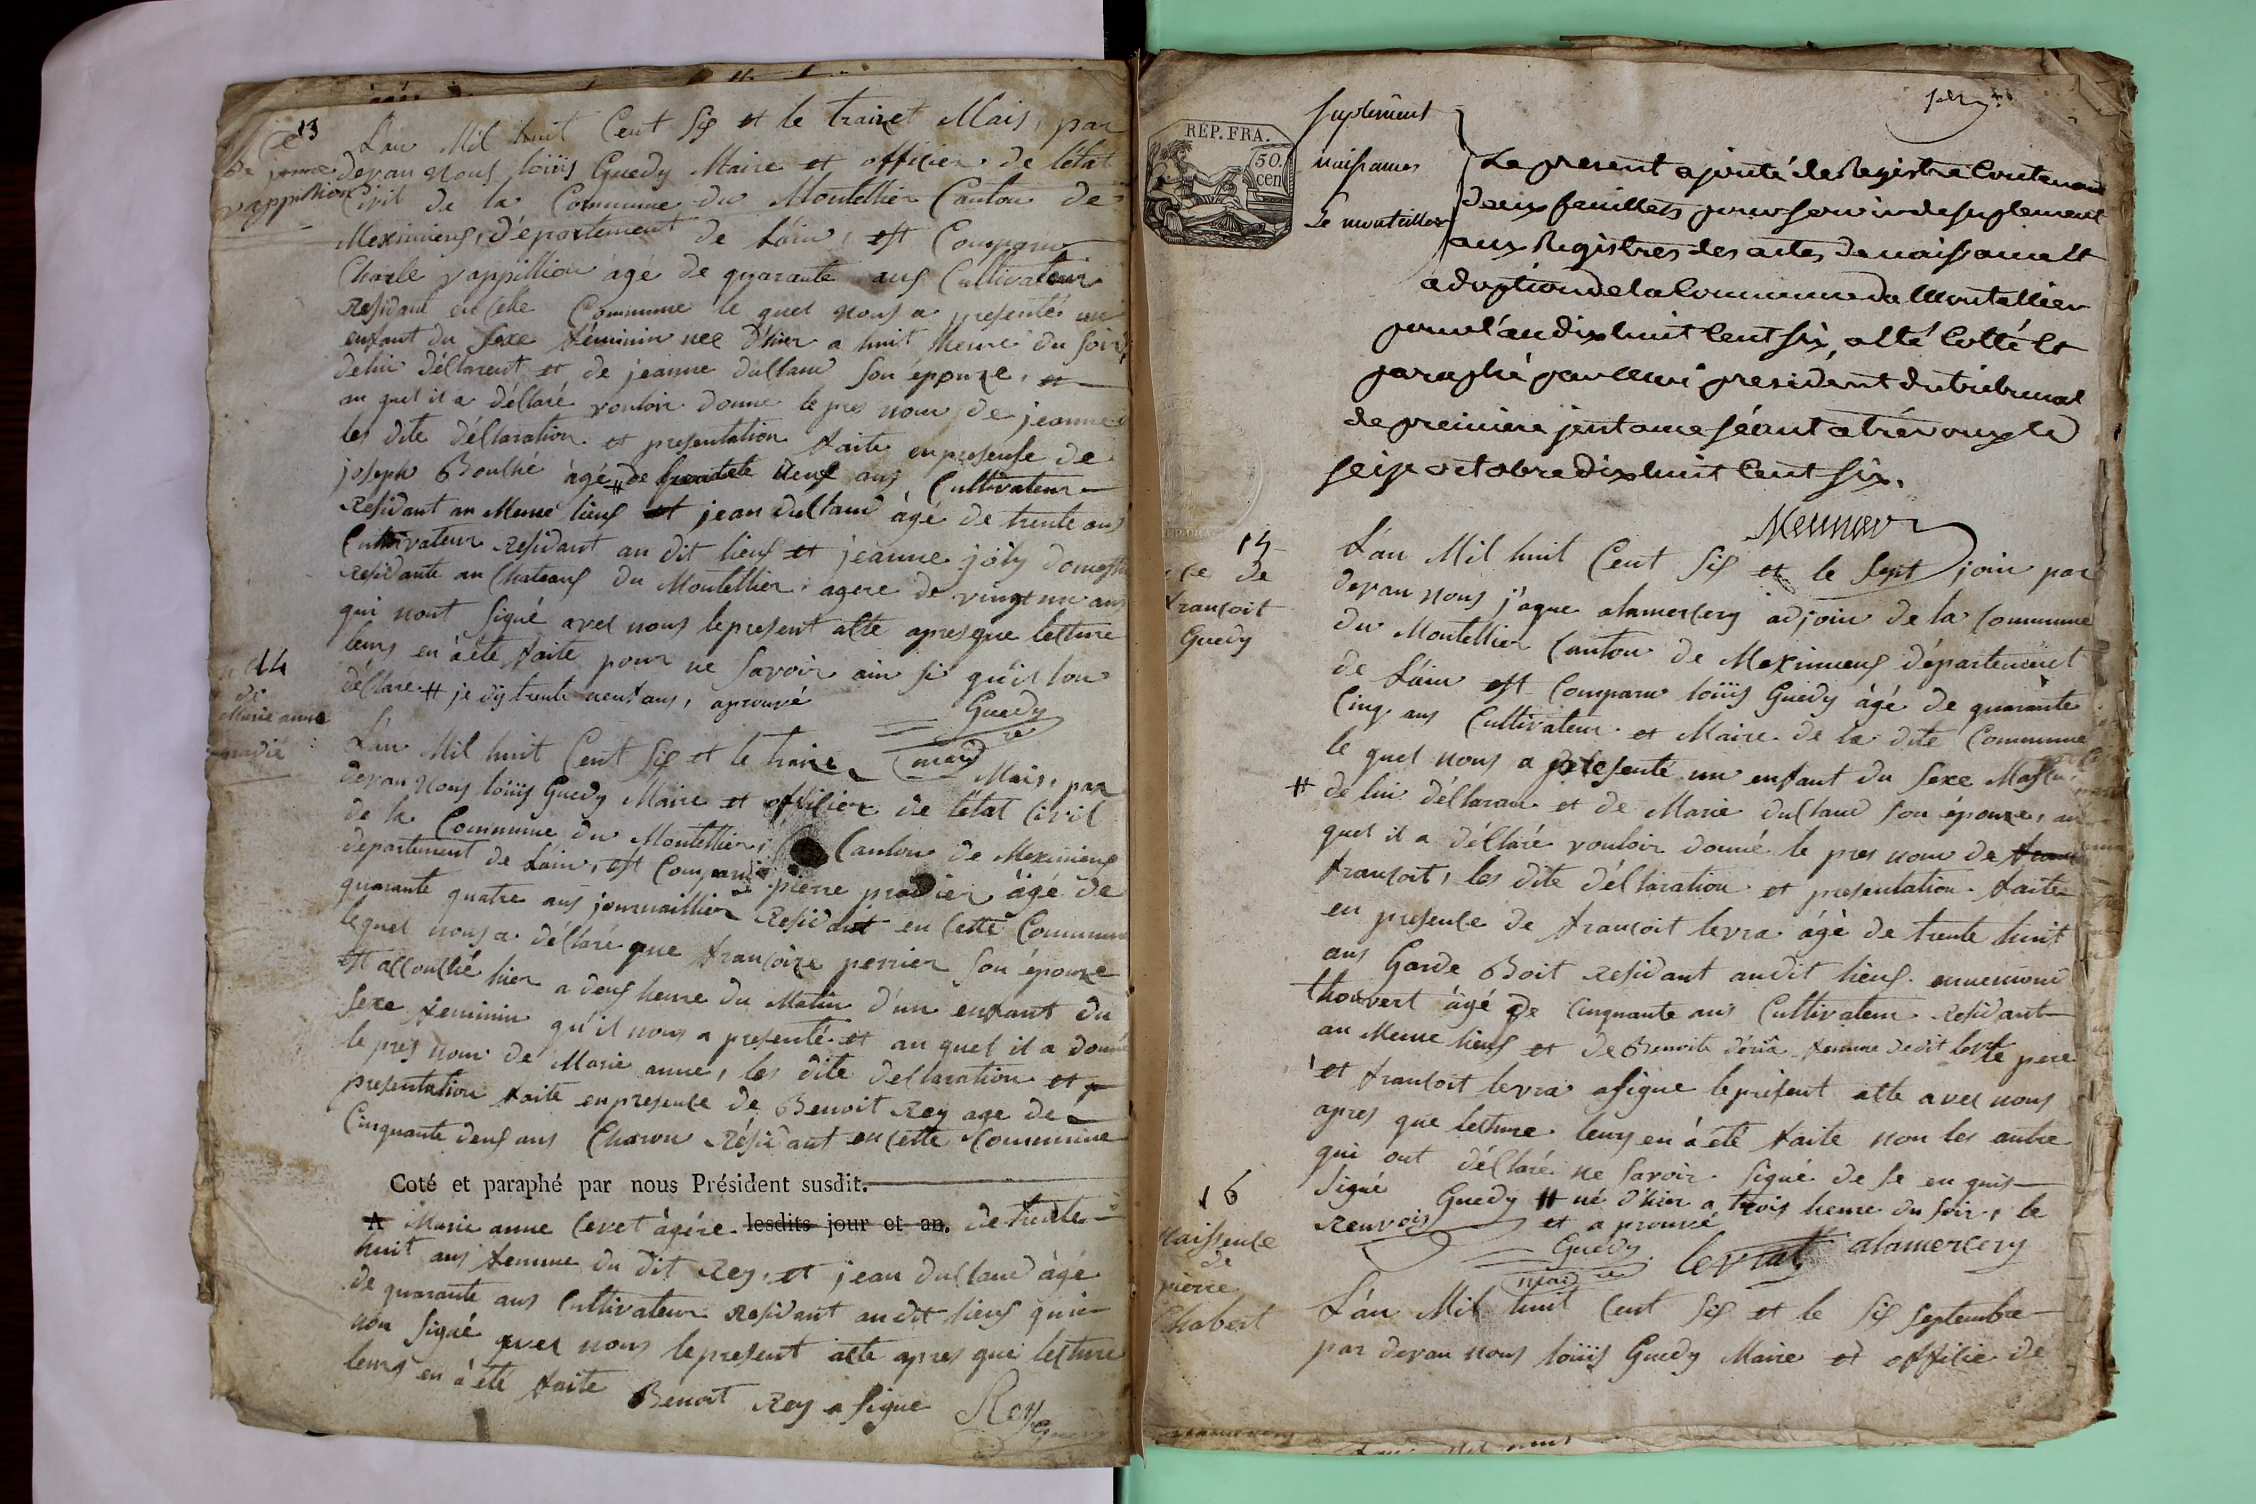 13
ce
de jeanne
vappillion
L'an Mil huit Cent Six et le traize Mais, par
devan nous loüis Guedy Maire et officier de l'état
Civil de la Commune du Montellier Canton de
Meximieux, département de L'ain, est Comparu
Charle vappillion agé de quarante ans Cultivateur
Residant en cette Commune le quel nous a presenté une
enfant du Sexe féminin nee D'hier a huit heure du Soir,
de lui déclarent et de jeanne dullaud Son épouze,
au quel il a déclaré vouloir donne le pres nom de jeanne
les dite déclaration et presentation faite en presense de
joseph Bouché àgé # de trente neuf ans Cultivateur
Residant au Meme lieux et jean dullaud àgé de trente ans
Cultivateur Residant au dit lieux et jeanne joly domestique
Residante au Chateaux du Montellier agere de vingt un ans
qui nont Signé avec nous le present acte apres que lecture
leurs en à été faite pour ne Savoir ain si qu'il lon
déclare # je dis trente neuf ans, aprouvé
Guedy
maire
14
de
Marie anne
pradié
L'an Mil huit Cent Six et le traize Mais, par
devan Nous loüis Guedy Maire et officier de l'état Civil
de la Commune du Montellier, Canton de Meximieux
departement de L'ain, est Comparu pierre pradier àgé de
quarante quatre ans journaillier Residant en Cette Commune
lequel nous a déclaré que françoize perrier Son épouze
est accouché hier a deux heure du Matin d'un enfant du
Sexe feminin qu'il nous a presenté et au quel il a donné
le pres nom de Marie anne, les dite declaration et
presentation faite en presense de Benoit Rey age de
Cinquante deux ans Charon Résidant en cette Commune
Coté et paraphé par nous Président susdit.
A Marie anne Cevet àgére lesdits jour et an. de trente
huit ans femme du dit Rey, et jean dullaud àgé
de quarante ans Cultivateur Residant au dit lieux qui
non Signé avec nous le present acte apres que lecture
leurs en à été faite Benoit Rey a Signé Rey
Guedy
REP. FRA.
50.
cen
Suplément
naissances
Le montellier
Le present ajouté de Registre Contenant
deux feuillets pour servir de suplement
aux Registres des actes de naissance et
adoption de la Commune du Montellier
pour l'an dix huit Cent Six, a été Cotté et
paraphé par Nous president du tribunal
de premiere jnstance séant a trévoux le
seize octobre dix huit Cent Six.
15
ce de
françoit
Guedy
L'an Mil huit Cent Six et le Sept join par
devan nous j'aque alamercery adjoin de la Commune
du Montellier Canton de Meximieux département
de L'ain est Comparu loüis Guedy àgé de quarante
Cinq ans Cultivateur et Maire de la dite Commune
le quel nous a présenté un enfant du Sexe Masculin
# de lui déclaran et de Marie dullaud Son épouze, au
quel il a déclaré vouloir donné le pres nom de
françoit, les dite déclaration et presentation faite
en presense de françoit levra àgé de trente huit
ans Garde Boit Residant au dit lieux
thouvert àgé de Cinquante ans Cultivateur Residant
au Meme lieux et de Benoite femme du dit
et françoit levra a signe le présent acte avec nous
apres que lecture leurs en à été faite non les autre
qui ont déclaré ne Savoir Signé de Se en quis
Signé Guedy # né d'hier a trois heure du Soir, le
Renvois et a prouvé
Guedy levrat alamercery
maire
16
Naissense
de
pierre
Chabert
L'an Mil huit Cent Six et le Six Septembre
par devan nous loüis Guedy Maire et officie de